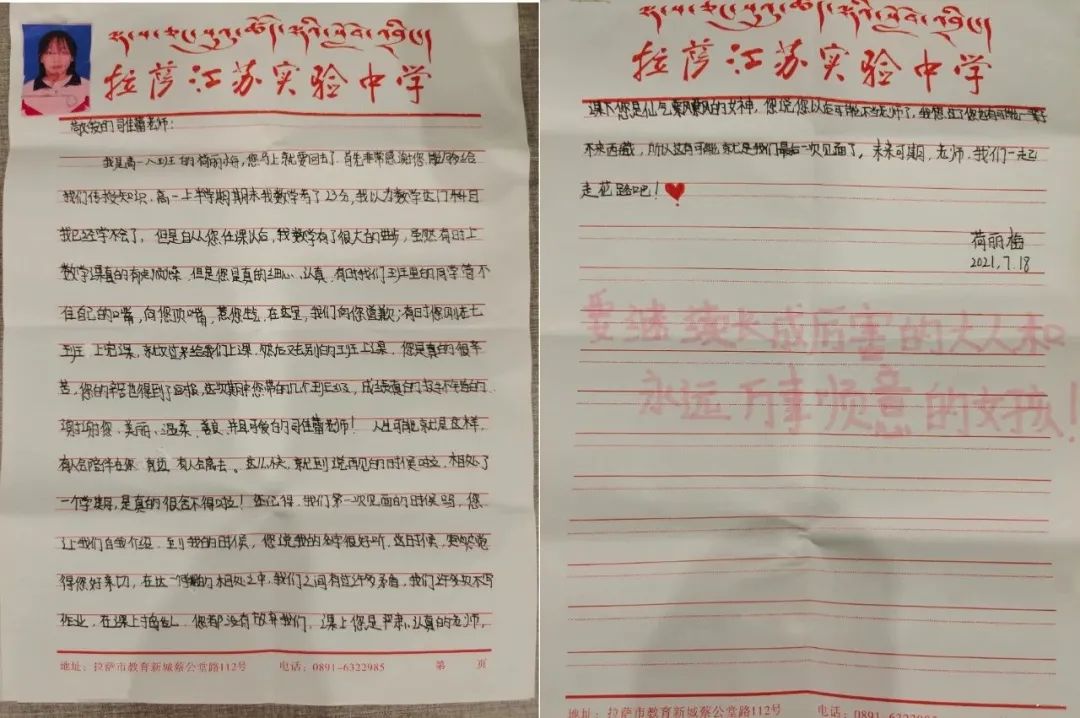 拉萨江苏实验中学
敬爱的司佳蕾老师：
我是高一八班的荷丽梅，您马上就要回去了。首先非常感谢您
我们传授知识，高一上半学期期末我数学考了23分，我以为数学这门科目
我已经学不会了，但是自从您任课以后，我数学有了很大的进步，虽然有时上
数学课真的有点烦躁，但是您是真的细心、认真，有时我们班里的同学管不
住自己的嘴，向您顶嘴，惹您生气，在这里，我们向您道歉；有时您刚走七
班上完课，就又过来给我们上课，然后又去别的班上课，您是真的很辛
苦，您的辛苦也得到了回报，这次期中您带的几个班级，成绩真的
谢谢您，美丽、温柔、善良、并且可爱的司佳蕾老师！人生可能就是这样，
有人会陪伴在你身边，有人会离去。这么快，就到说再见的时候啦，相处了
一个学期，是真的很舍不得啦！还记得，我们第一次见面的时候吗，您
让我们自我介绍，到我的时候，您说我的名字很好听，这时候，更觉
得您好亲切，在这一学期的相处之中，我们之间有过许多矛盾，我们许多次不写
作业，在课上捣乱，您都没有放弃我们，课上您是严肃、认真的老师，
地址：拉萨市教育新城蔡公堂路112号 电话：0891-6322985 第 页
拉萨江苏实验中学
课下您是仙气飘飘的女神，您说，您以后可能不当老师了，
来西藏，所以这有可能就是我们最后一次见面了，未来可期，老师，我们一起
走花路吧！
荷丽梅
2021.7.18
要继续长成厉害的大人和
永远万事顺意的女孩！
地址：拉萨市教育新城蔡公堂路112号 电话：0891-6322985